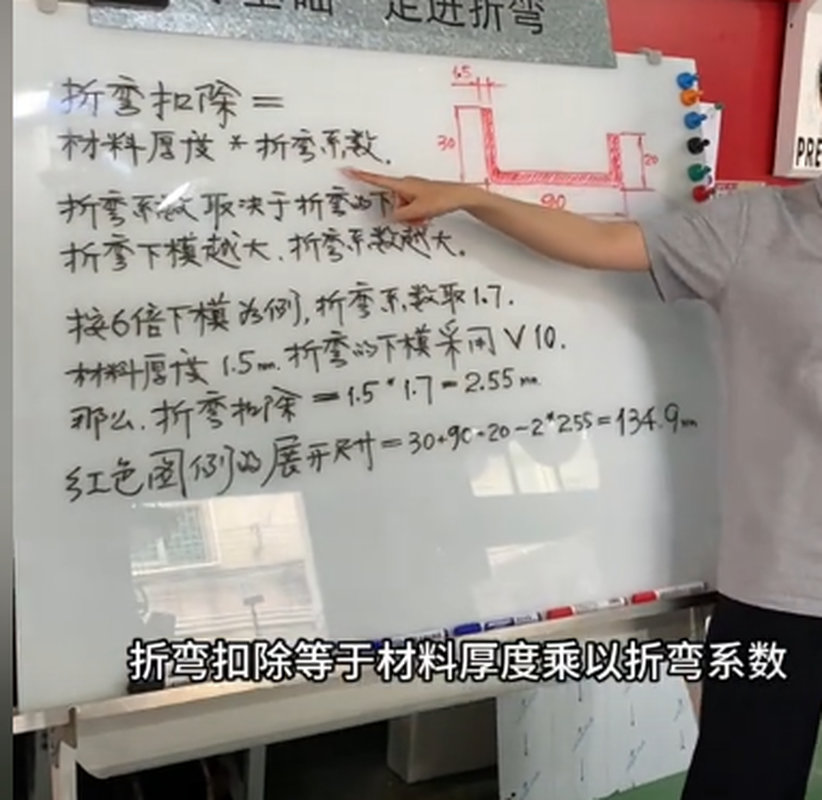 走进折弯
折弯扣除=
材料厚度*折弯系数.
折弯系数取决于折弯的下
折弯下模越大.折弯系数越大。
按6倍下模为例,折弯系数取1.7.
材料厚度1.5mm.折弯的下模采用V10.
那么.折弯扣除=1.5*1.7=2.55mm
红色图例的展开尺寸=30+90+20-2*2.55=134.9mm
1.5
30
20
90
PRE
折弯扣除等于材料厚度乘以折弯系数